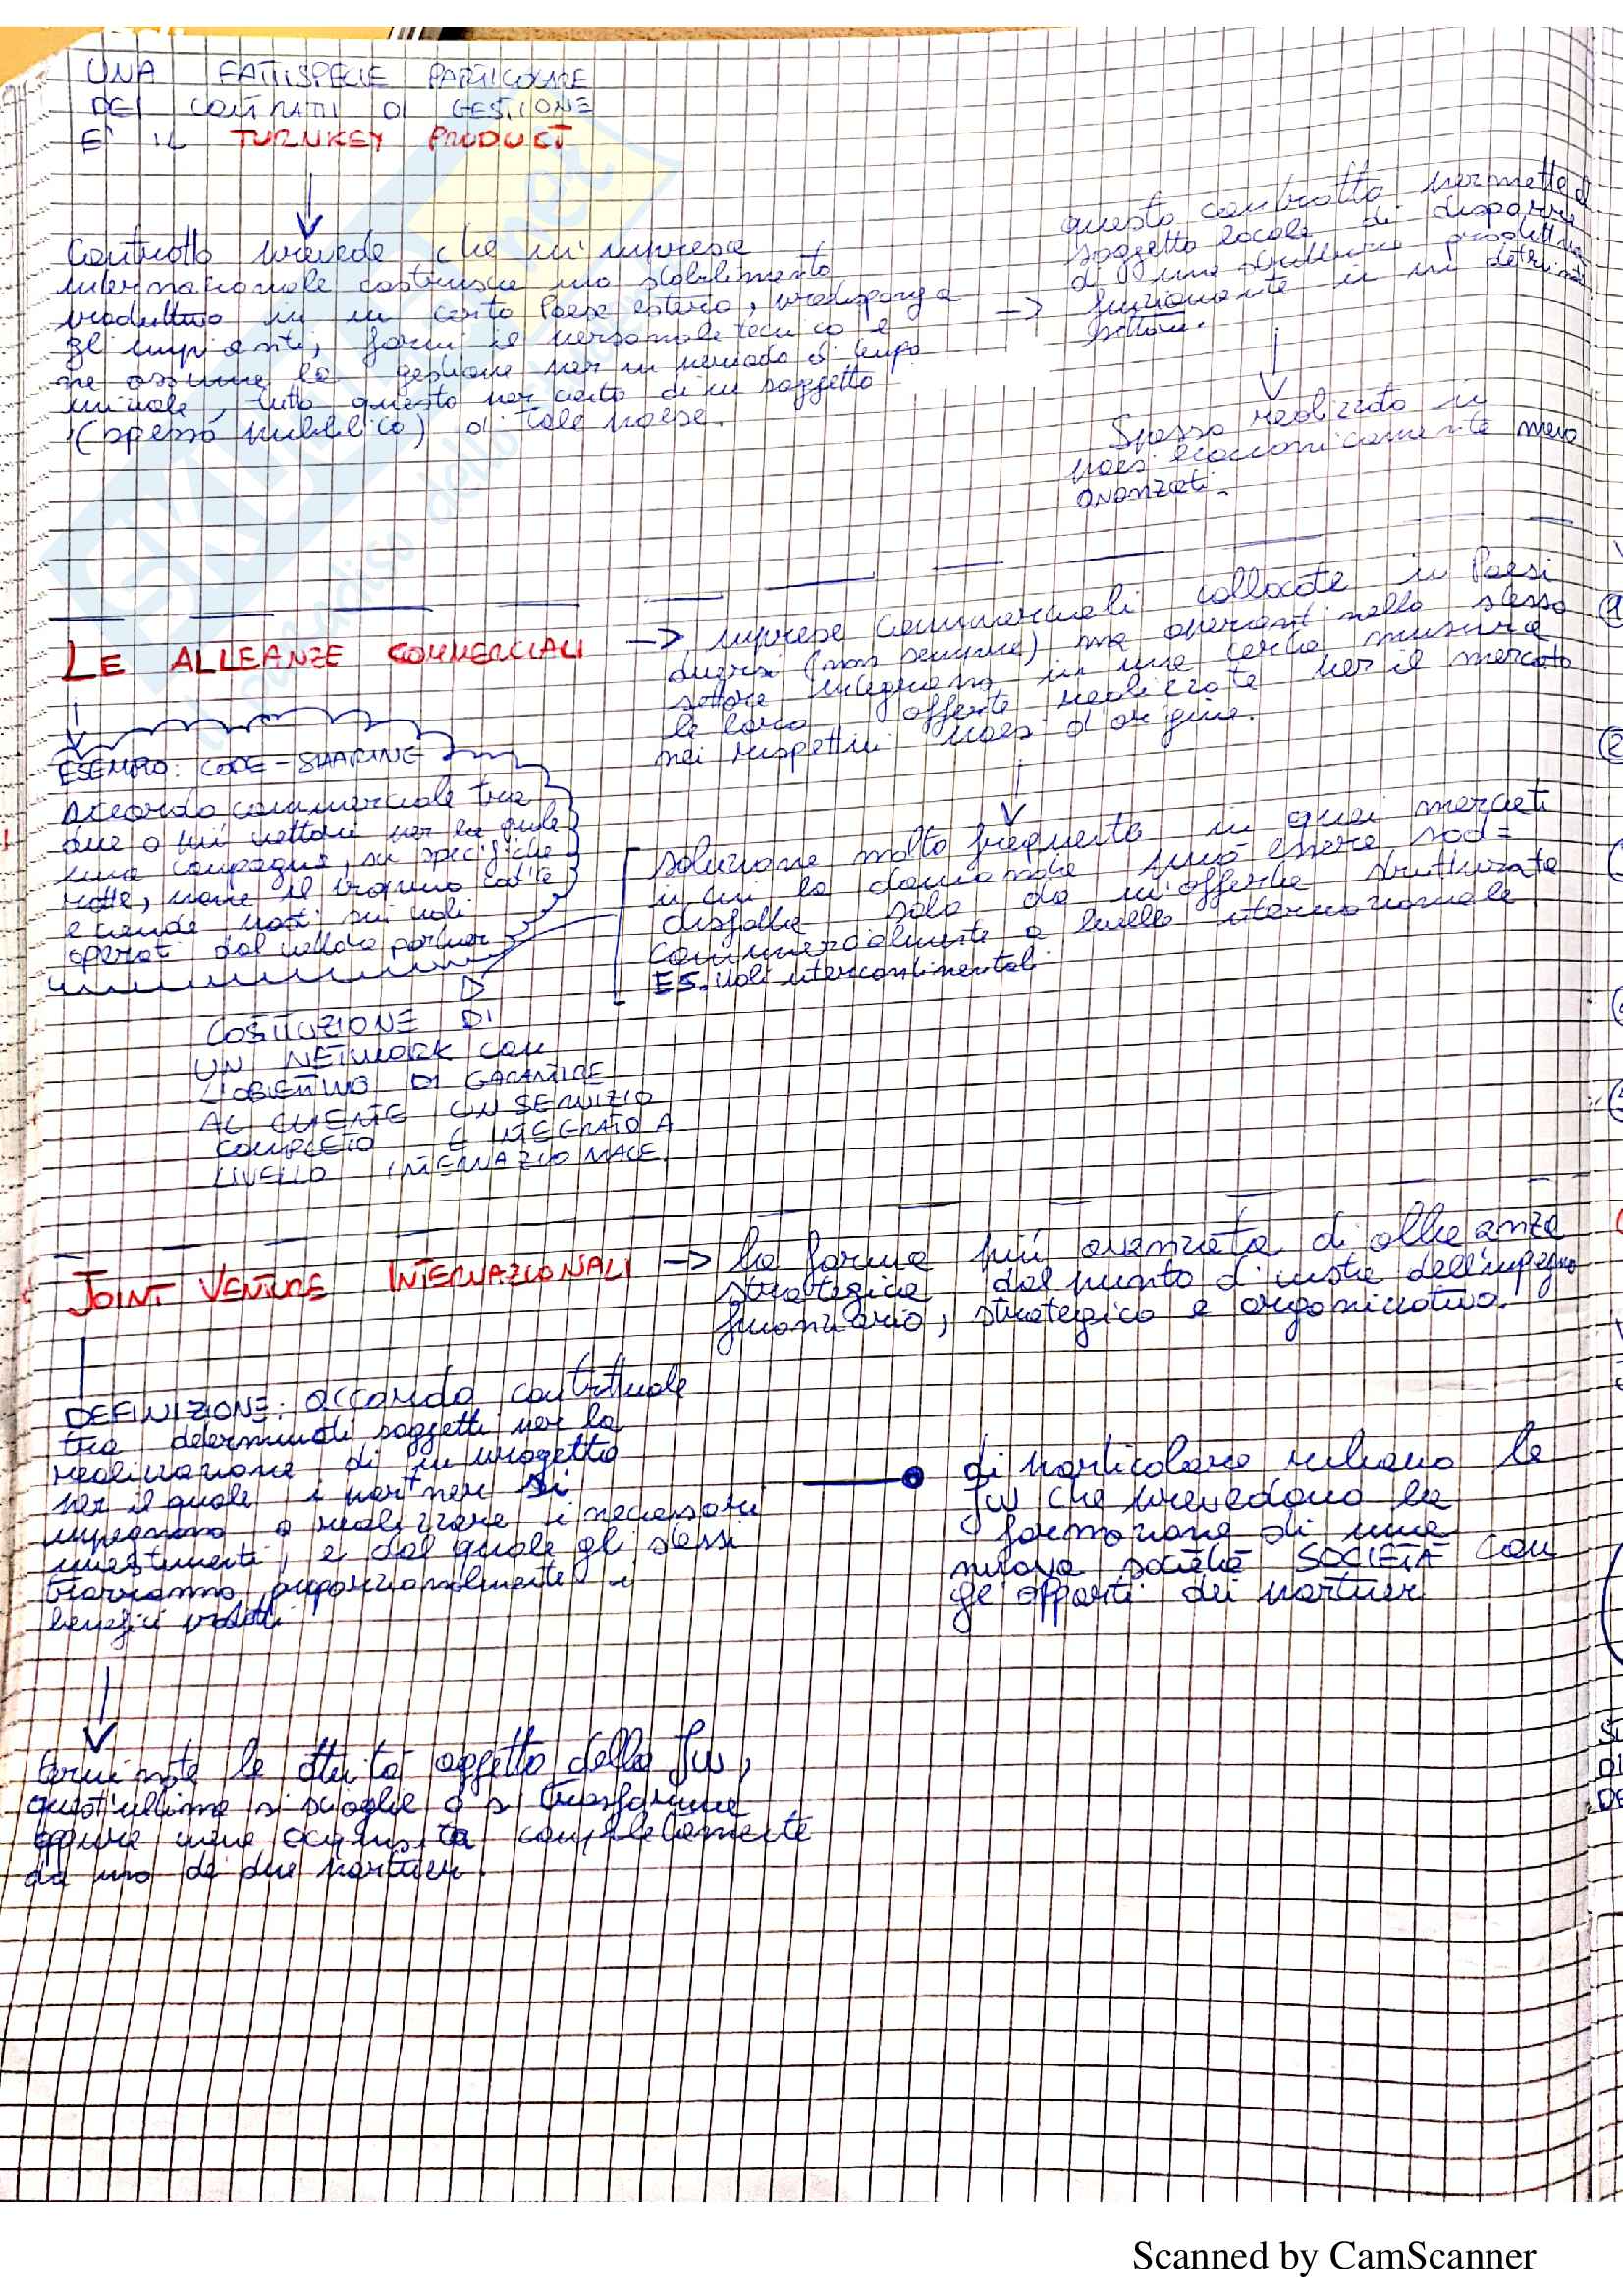 UNA FATTISPECIE PARTICOLARE
DEI CONTRATTI DI GESTIONE
E' IL TURNKEY PRODUCT
Contratto prevede che un'impresa
internazionale costruisca uno stabilimento
produttivo in un certo Paese estero, predisponga
gli impianti, forni il personale tecnico e
ne assume la gestione per un periodo di tempo
iniziale, tutto questo per conto di un soggetto
(spesso pubblico) di tale paese.
questo contratto permette al
soggetto locale di disporre
di una struttura produttiva
funzionante in un
settore.
Spesso realizzato in
paesi economicamente meno
avanzati.
LE ALLEANZE COMMERCIALI
imprese commerciali collocate in Paesi
diversi (non sempre) ma operanti nello stesso
settore integrano in una certa misura
le loro offerte realizzate per il mercato
nei rispettivi paesi d'origine.
ESEMPIO: CODE-SHARING
accordo commerciale tra
due o più vettori per la quale
una compagnia, su specifiche
rotte, pone il proprio codice
e vende posti sui voli
operati dal vettore partner
soluzione molto frequente in quei mercati
in cui la domanda può essere sod=
disfatta solo da un'offerta strutturata
commercialmente a livello internazionale
ES. Voli intercontinentali
COSTITUZIONE DI
UN NETWORK CON
L'OBIETTIVO DI GARANTIRE
AL CLIENTE UN SERVIZIO
COMPLETO E INTEGRATO A
LIVELLO INTERNAZIONALE
JOINT VENTURE INTERNAZIONALI
la forma più avanzata di alleanza
strategica dal punto di vista dell'impegno
finanziario, strategico e organizzativo.
DEFINIZIONE: accordo contrattuale
tra determinati soggetti per la
realizzazione di un progetto
per il quale i partner si
impegnano a realizzare i necessari
investimenti, e dal quale gli stessi
trarranno proporzionalmente i
benefici
di particolare rilievo le
JV che prevedono la
formazione di una
nuova società SOCIETÀ con
gli apporti dei partner
terminate le attività oggetto della JV,
quest'ultima si scioglie o si trasforma
oppure viene acquisita completamente
da uno dei due partner.
Scanned by CamScanner